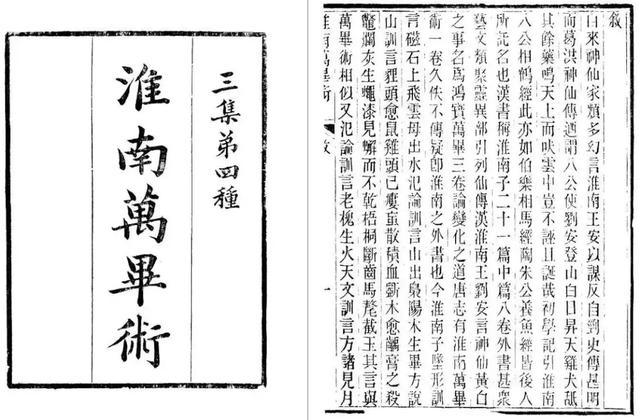 三集第四種
淮南萬畢術
敘
自來神仙家類多幻言淮南王安以謀反自剄史傳甚明
而葛洪神仙傳迺謂八公使劉安登山白日昇天雞犬舐
其餘藥鳴天上而吠雲中豈不誣且誕哉初學記引淮南
八公相鶴經此亦如伯樂相馬經陶朱公養魚經皆後人
所託名也漢書稱淮南子二十一篇中篇八卷外書甚衆
藝文類聚靈異部引列仙傳漢淮南王劉安言神仙黃白
之事名爲鴻寶萬畢三卷論變化之道唐志有淮南萬畢
術一卷久佚不傳疑卽淮南之外書也今淮南子墬形訓
言磁石上飛雲母出水氾論訓言山出梟陽木生畢方說
山訓言貍頭愈鼠雞頭已瘻䖟散積血斵木愈齲膏之殺
鼈爛灰生蠅漆見蠏而不乾梧桐斷齒馬氂截玉其言與
萬畢術相似又氾論訓言老槐生火天文訓言方諸見月
淮南萬畢術 敘 一